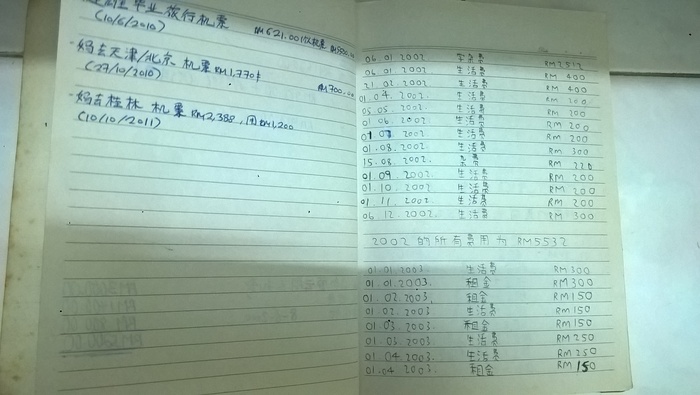 毕业旅行机票 RM621.00
(10/6/2010)
妈去天津/北京 机票RM1,770
RM700.
(27/10/2010)
妈去桂林 机票RM2,388, 团RM1,200
(10/10/2011)
06.01.2002 学杂费 RM2512
06.01.2002 生活费 RM 400
21.02.2002 生活费 RM 400
01.04.2002 生活费 RM 200
05.05.2002 生活费 RM 200
01.06.2002 生活费 RM 200
01.07.2002 生活费 RM 200
01.08.2002. 生活费 RM 300
15.08.2002. 杂费 RM 220
01.09.2002. 生活费 RM 200
01.10.2002 生活费 RM 200
01.11.2002. 生活费 RM 200
06.12.2002. 生活费 RM 300
2002 的所有费用为 RM5532
01.01.2003. 生活费 RM300
01.01.2003. 租金 RM300
01.02.2003. 租金 RM150
01.02.2003 生活费 RM150
01.03.2003 租金 RM150
01.03.2003 生活费 RM250
01.04.2003. 生活费 RM250
01.04.2003 租金 RM150